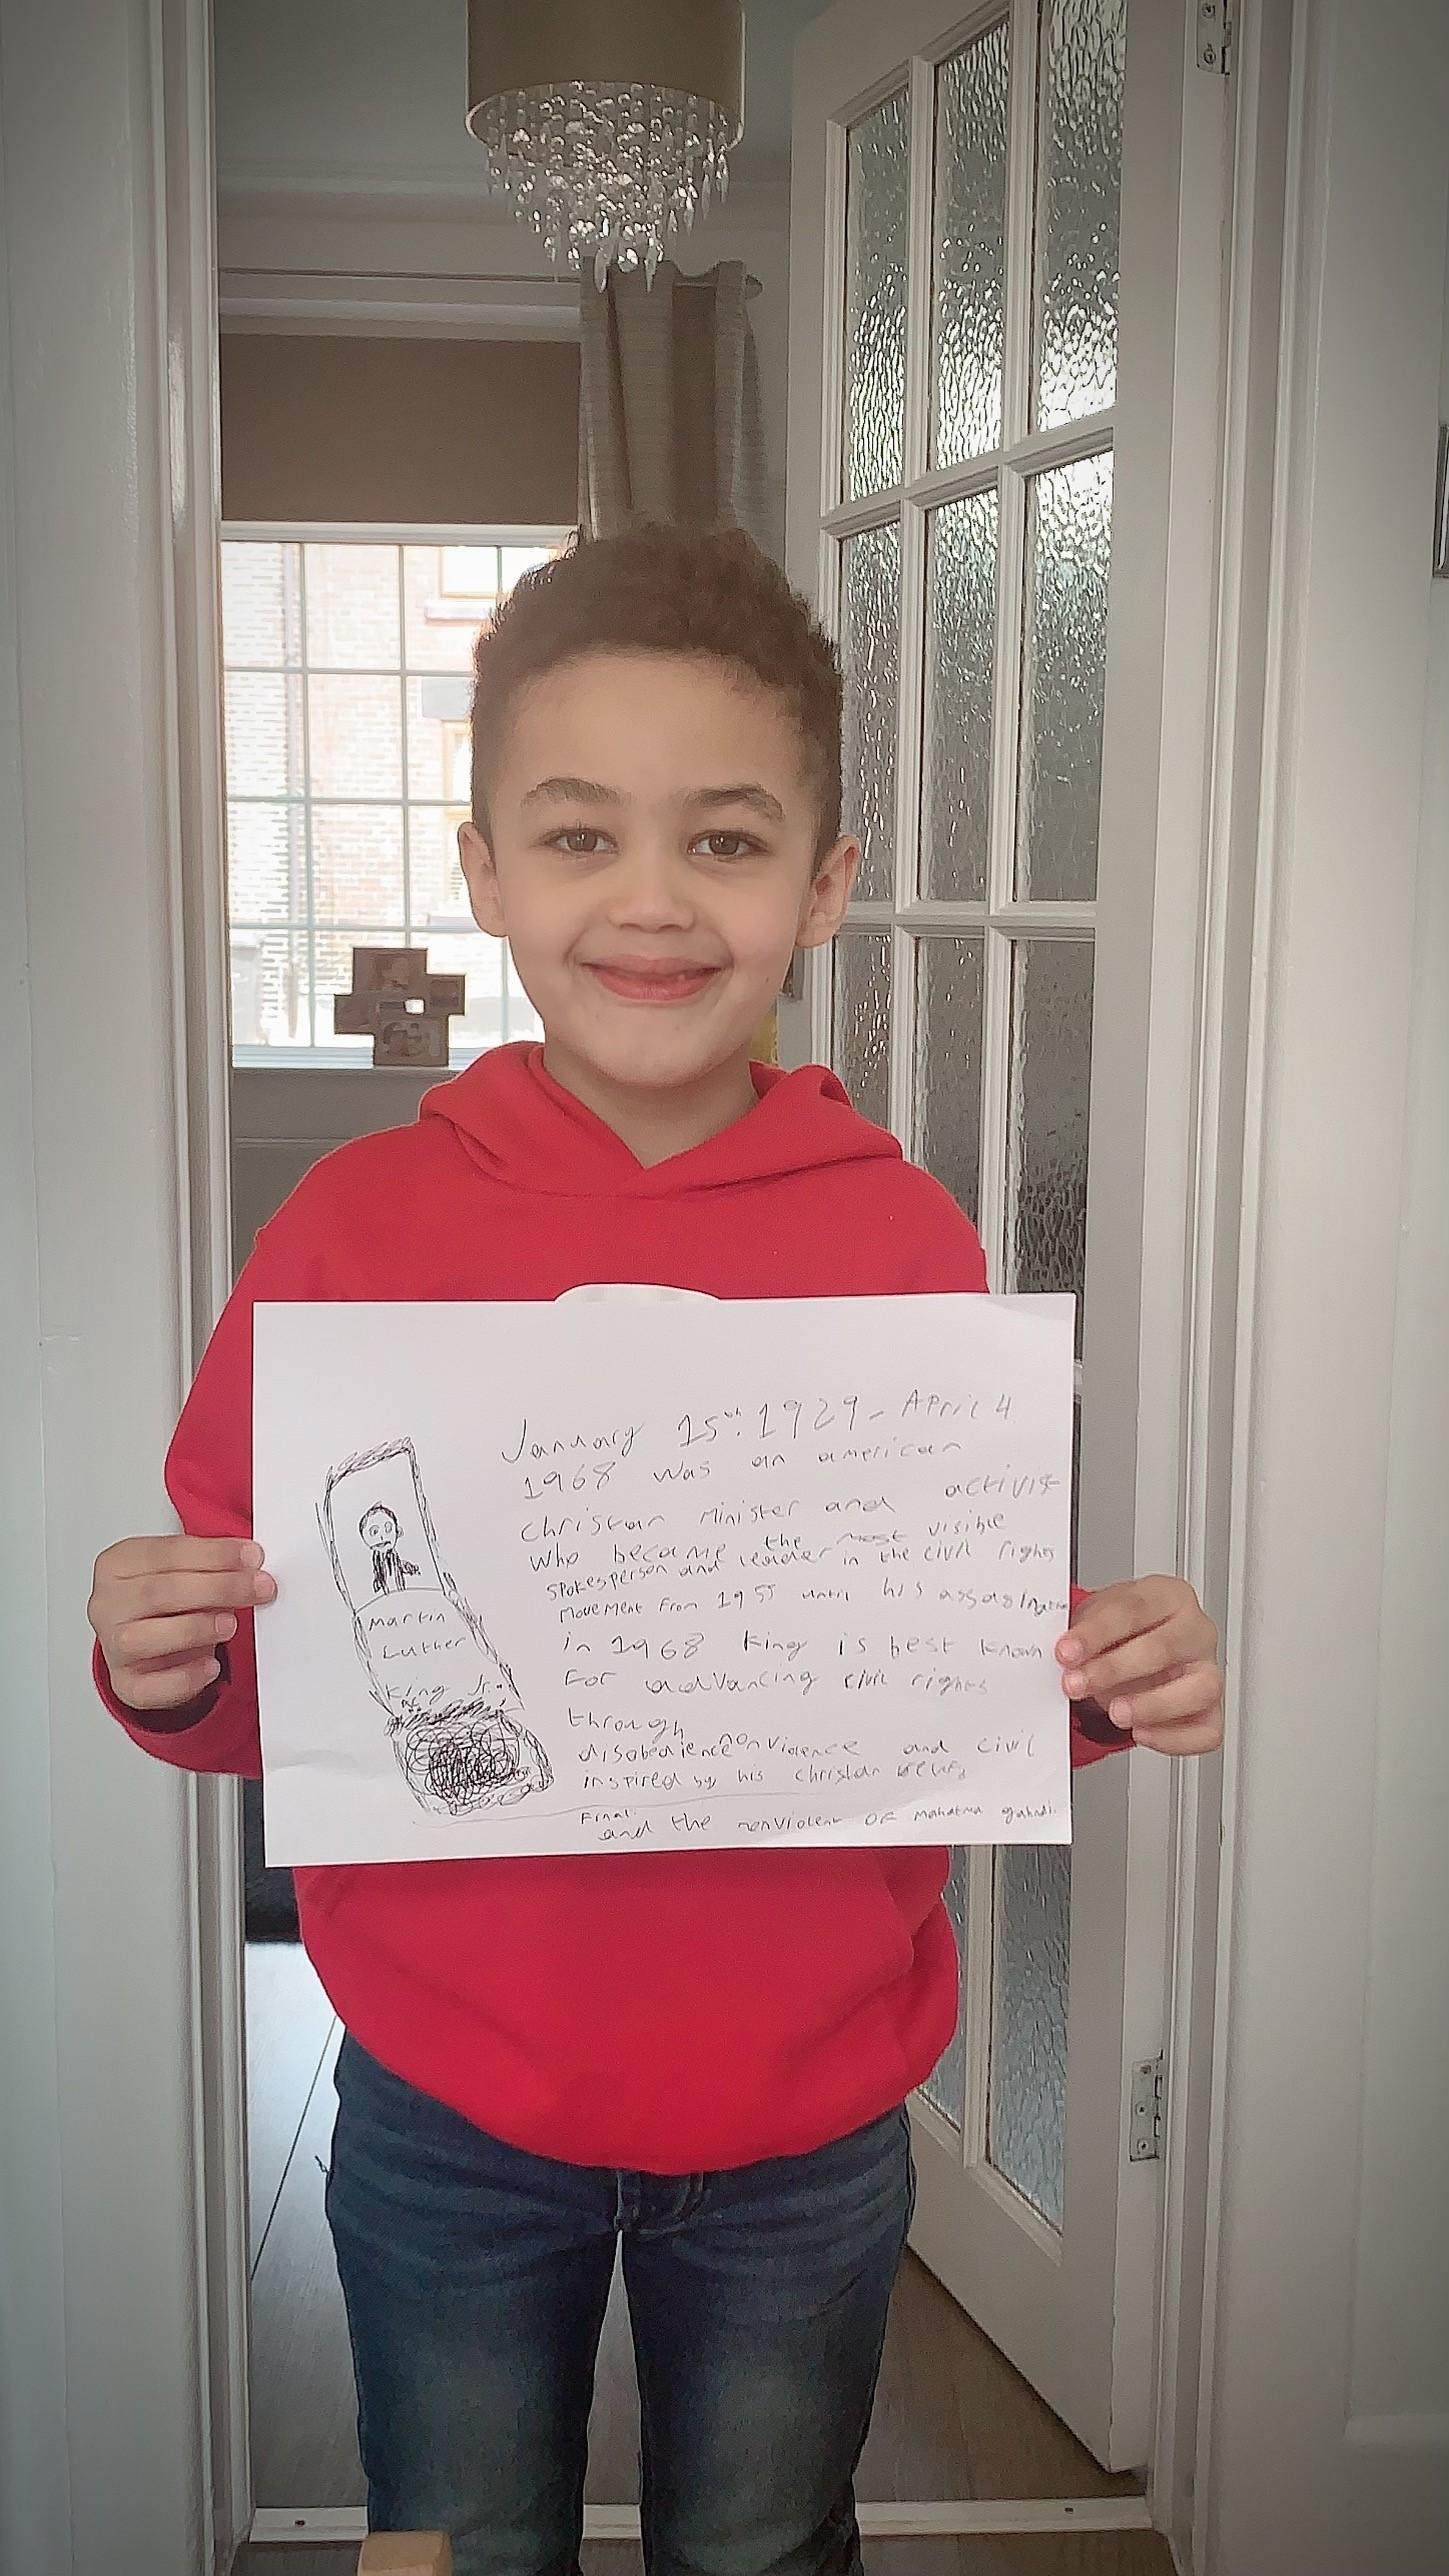 Martin
Luther
King Jr.
January 15th. 1929 - April 4
1968 was an american
christan Minister and activist
who became the most visible
spokesperson and leader in the civil rights
movement from 1955 until his
in 1968 King is best known
For advancing civil rights
through
disobedience nonviolence and civil
inspired by his christan
Final:
and the nonviolent OF Mahatma